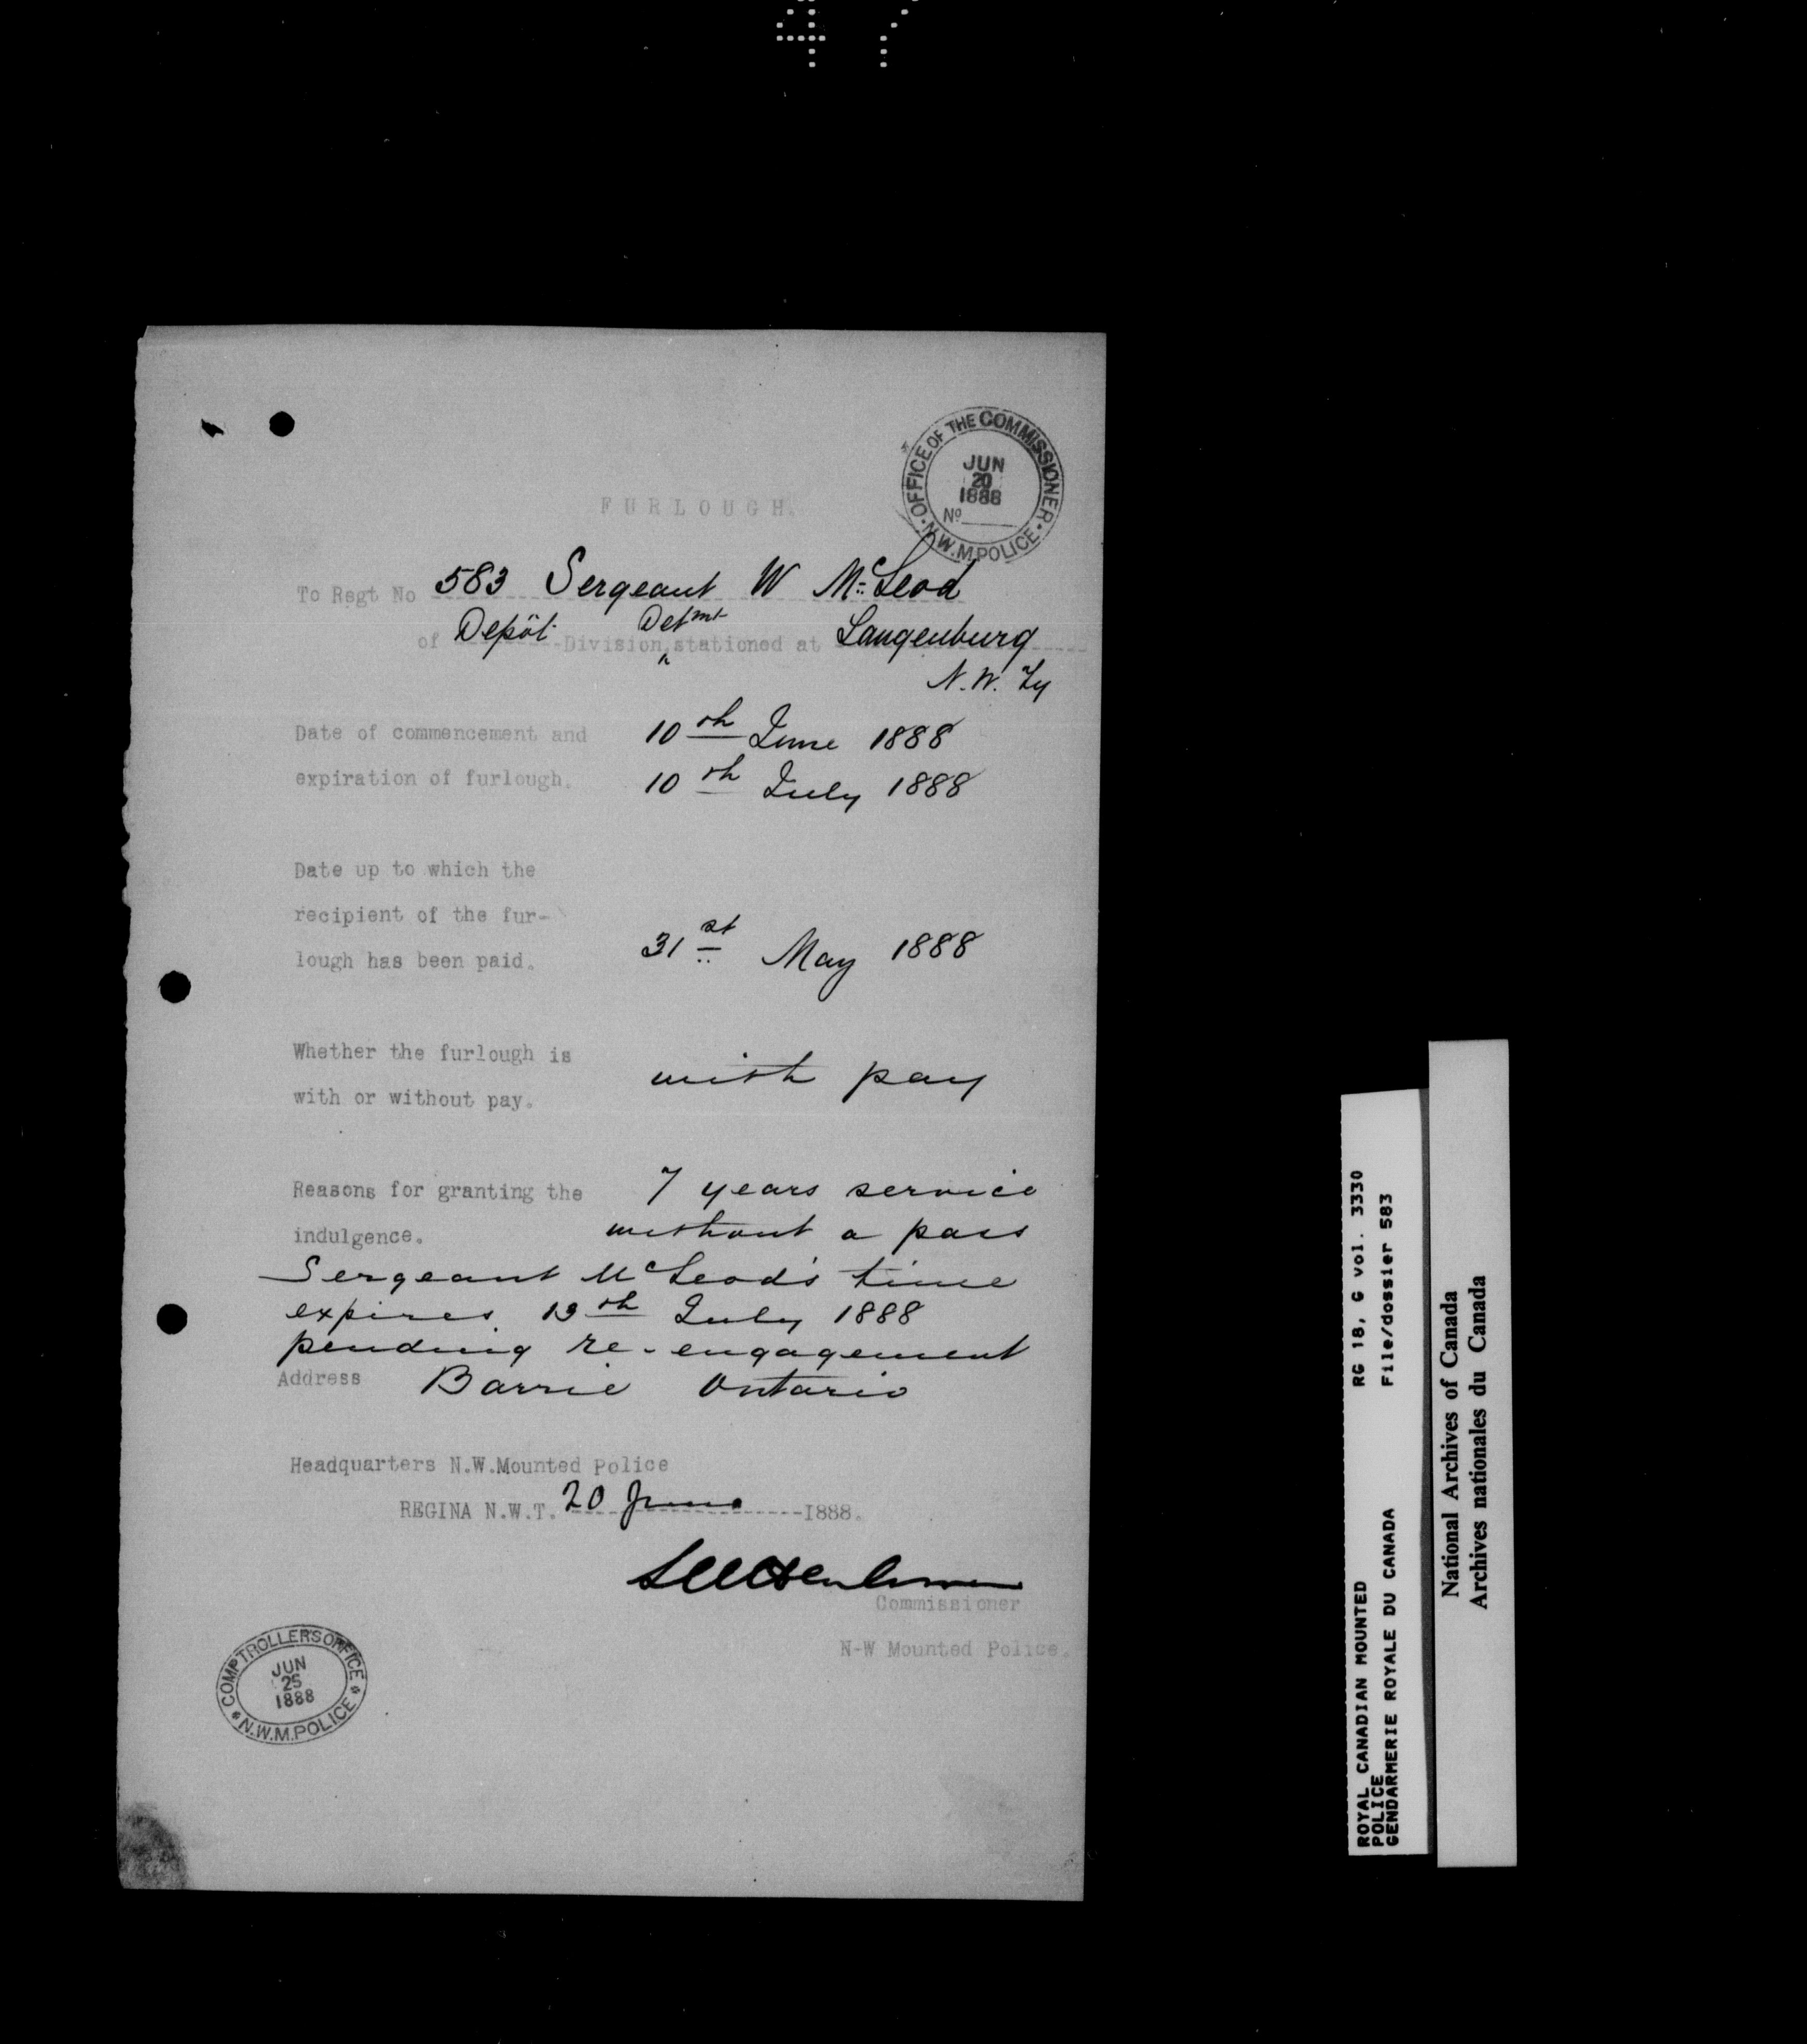 47
OFFICE OF THE COMMISSIONER
JUN
20
1888
No
N.W.M.POLICE
FURLOUGH.
To Regt No 583 Sergeant W McLeod
of Depôt Division Detmt stationed at Langenburg
N.W. Ty
Date of commencement and 10th June 1888
expiration of furlough. 10th July 1888
Date up to which the
recipient of the fur-
lough has been paid. 31st May 1888
Whether the furlough is
with or without pay. with pay
Reasons for granting the 7 years service
indulgence. without a pass
Sergeant McLeod's time
expires 13th July 1888
pending re-engagement
Address Barrie Ontario
Headquarters N.W.Mounted Police
REGINA N.W.T. 20 June 1888.
Commissioner
N-W Mounted Police.
COMPTROLLERS OFFICE
JUN
25
1888
N.W.M.POLICE
ROYAL CANADIAN MOUNTED RG 18, G vol. 3330
POLICE
GENDARMERIE ROYALE DU CANADA File/dossier 583
National Archives of Canada
Archives nationales du Canada